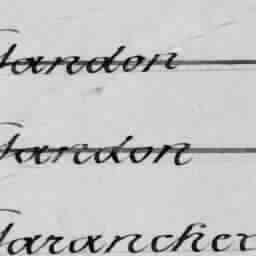 Tandon
Tandon
Tarancher